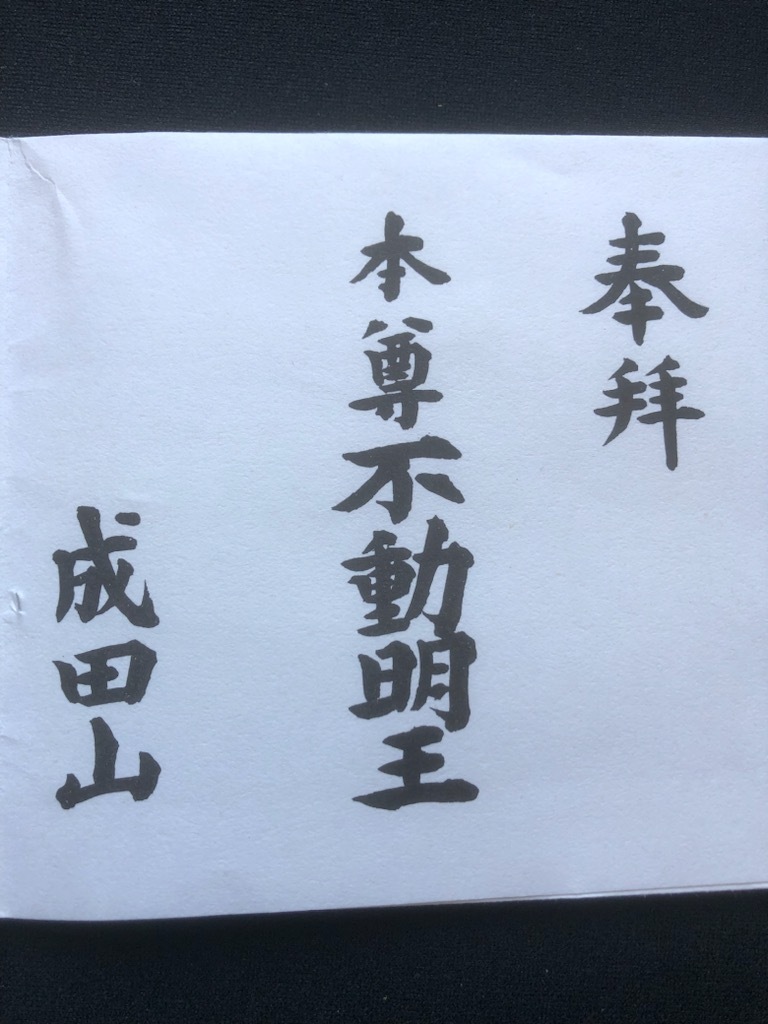 奉拜
本尊不動明王
成田山